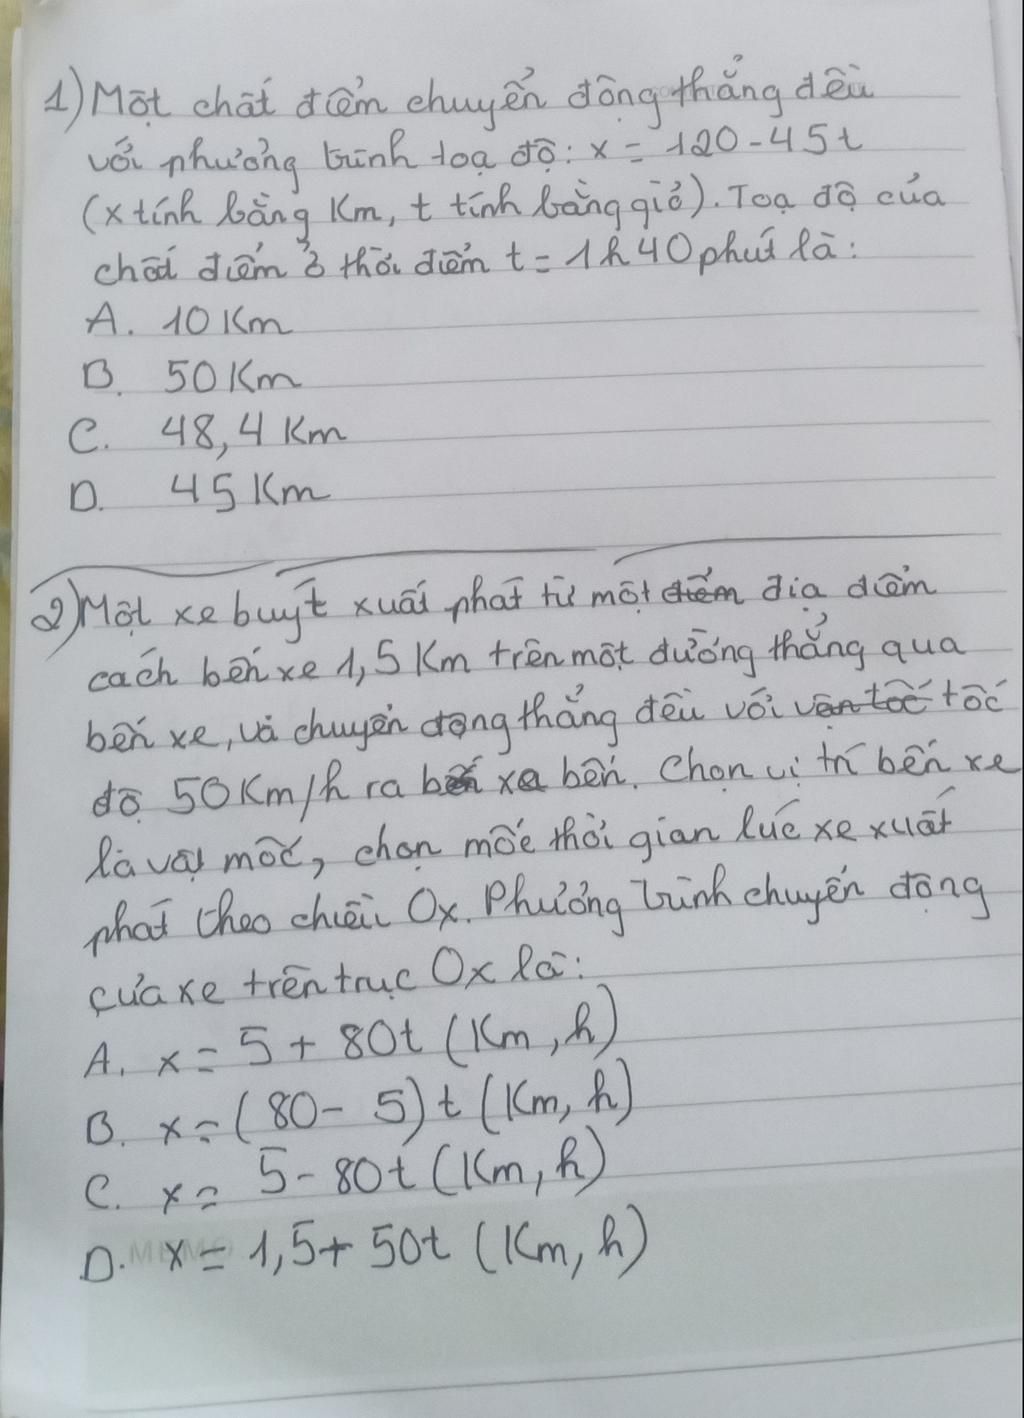 1) Một chất điểm chuyển động thẳng đều
với phương trình toạ độ: x = 120 - 45t
(x tính bằng Km, t tính bằng giờ). Toạ độ của
chất điểm ở thời điểm t = 1h40 phút là:
A. 10 Km
B. 50 Km
C. 48,4 Km
D. 45 Km
2) Một xe buýt xuất phát từ một điểm địa điểm
cách bến xe 1,5 Km trên một đường thẳng qua
bến xe, và chuyển động thẳng đều với vận tốc tốc
độ 50 Km/h ra bến xe bến. Chọn vị trí bến xe
là vật mốc, chọn mốc thời gian lúc xe xuất
phát theo chiều Ox. Phương trình chuyển động
của xe trên trục Ox là:
A. x = 5 + 80t (Km, h)
B. x = (80 - 5)t (Km, h)
C. x = 5 - 80t (Km, h)
D. x = 1,5 + 50t (Km, h)